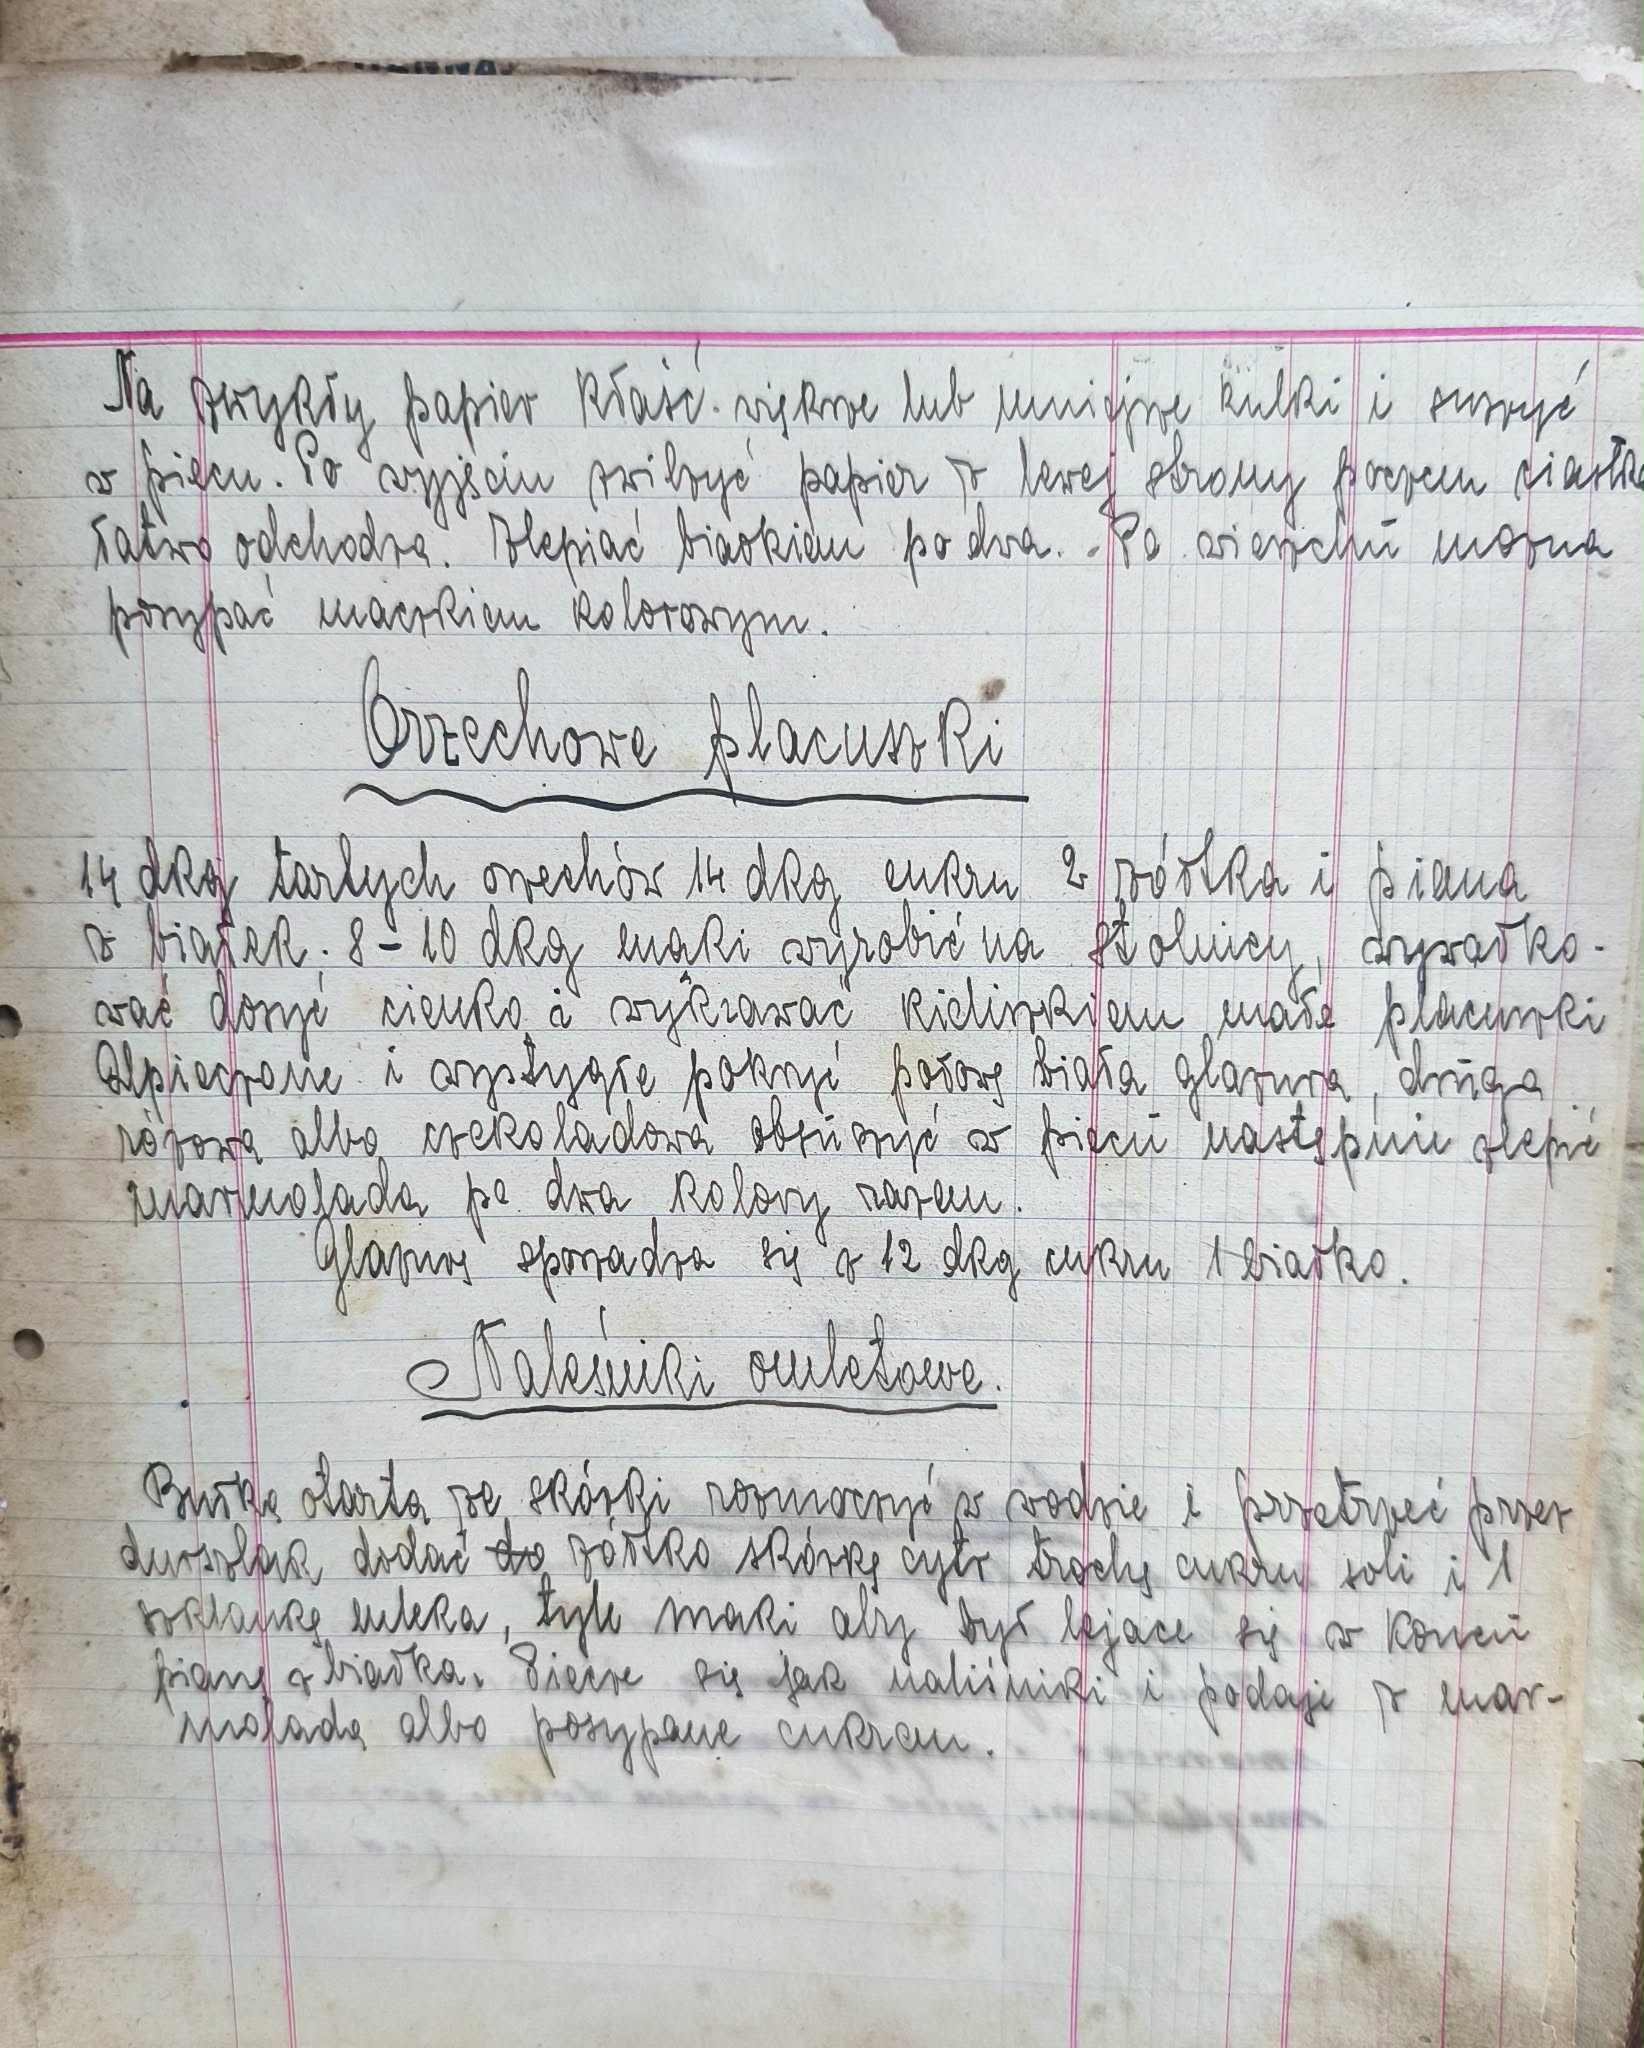 Na zwykły papier kłaść większe lub mniejsze kulki i suszyć
w piecu. Po wyjęciu zwilżyć papier z lewej strony poczem ciastka
łatwo odchodzą. Zlepiać białkiem po dwa. Po wierzchu można
posypać maczkiem kolorowym.
Orzechowe placuszki
14 dkg tartych orzechów 14 dkg cukru 2 żółtka i piana
z białek. 8-10 dkg mąki wyrobić na stolnicy, wywałko-
wać dosyć cienko i wykrawać kieliszkiem małe placuszki
Upieczone i wystygłe pokryć połowę białą glazurą, drugą
różową albo czekoladową obsuszyć w piecu następnie zlepić
marmoladą po dwa kolory razem.
Glazurę sporządza się z 12 dkg cukru 1 białko.
Naleśniki omletowe.
Bułkę otartą ze skórki rozmoczyć w wodzie i przetrzeć przez
durszlak dodać do żółtko skórkę cytr trochę cukru soli i 1
szklankę mleka, tyle mąki aby był lejące się w końcu
pianę z białka. Piecze się jak naliśniki i podaje z mar-
moladą albo posypane cukrem.